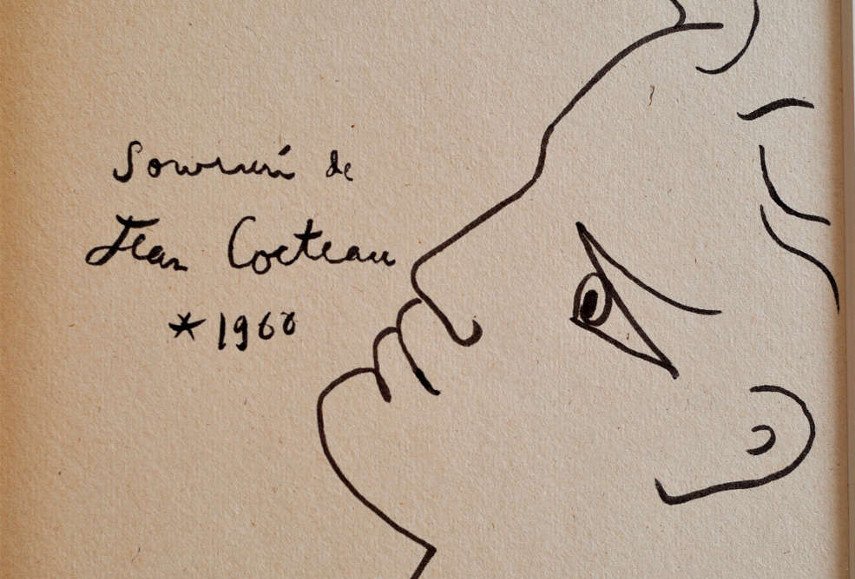 Souvenir de
Jean Cocteau
*1960